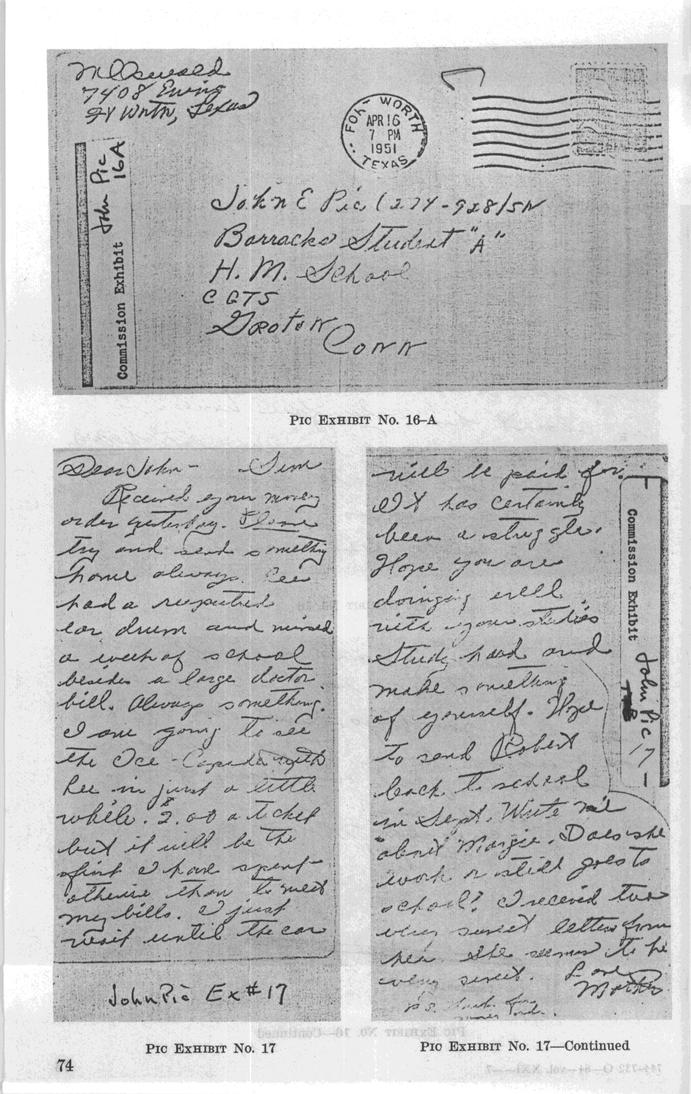 M Oswald
7408 Ewing
Ft Worth, Texas
FORT WORTH
APR 16
7 PM
1951
TEXAS
Commission Exhibit
John Pic
16A
John E Pic (274-928) SN
Barracks Student "A"
H. M. School
C G T S
Groton
Conn
PIC EXHIBIT NO. 16–A
Dear John –
Received your money
order yesterday. Please
try and send something
home always. Lee
had a ruputred
ear drum and missed
a week of school
besides a large doctor
bill. Always something.
I am going to see
the Ice-Capades with
Lee in just a little
while. $2.00 a ticket
but it will be the
first I have spent
otherwise than to meet
my bills. I just
wait until the car
John Pic Ex#17
PIC EXHIBIT NO. 17
will be paid for.
It has certainly
been a struggle.
Hope you are
doinging well
with your studies
Study hard and
make something
of yourself. Hope
to send Robert
back to school
in Sept. Write me
about Margie. Does she
work or still goes to
school? I received two
very sweet letters from
her she seems to be
very sweet. Love
Mother
Commission Exhibit
John Pic
17
PIC EXHIBIT NO. 17—Continued
74